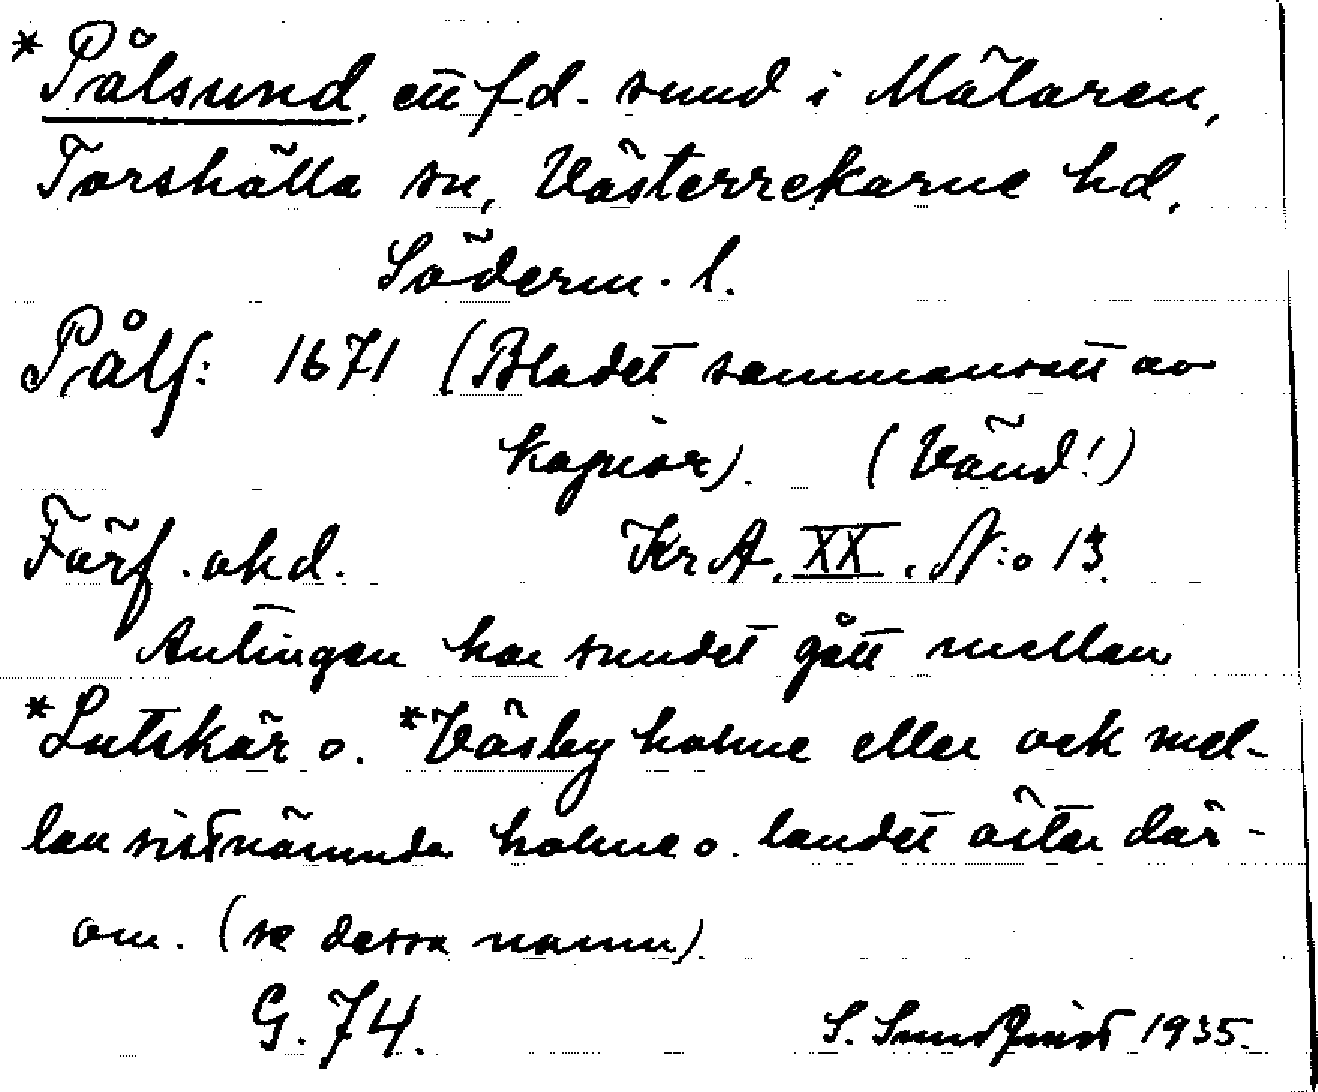 *Pålsund, ett f d. sund i Mälaren,
Torshälla sn, Västerrekarne hd,
Söderm. l.
Pålf: 1671 (Bladet sammansatt av
kopior). (Vänd!)
Förf. okd. KrA, XX, N:o 13.
Antingen har sundet gått mellan
*Lutskär o. *Väsby holme eller ock mel-
lan sistnämnda holme o. landet öster där-
om. (se dessa namn).
G. 74. S. Sundquist 1935.